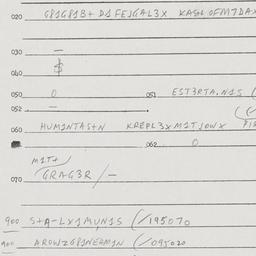 020 G81G81B+ D1FEJGAL3X KASL OFM7DAX
030 —
$
040
050 0 051 EST3RTA.N1S (
052 —
060 HUM1NTAS+N KREPL3X M1TJOWX
062 0
M1T+
070 GRAG3R/—
900 S+A-LX1MUN1S (/195070
900 AROWZG81NERM1N (/095020